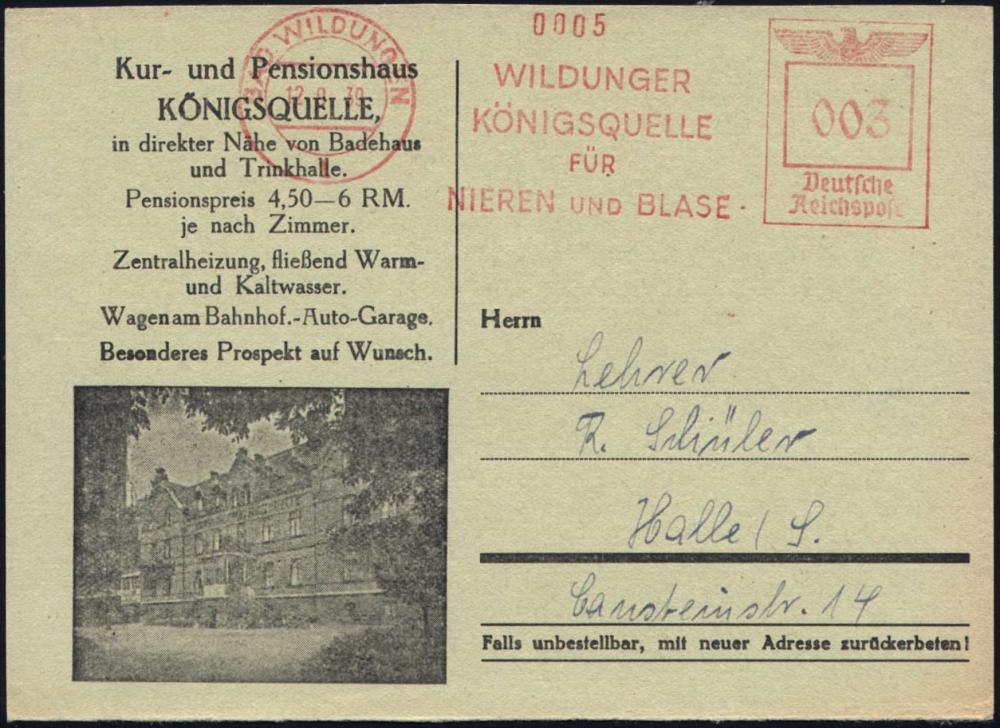 Kur- und Pensionshaus
KÖNIGSQUELLE,
in direkter Nähe von Badehaus
und Trinkhalle.
Pensionspreis 4,50—6 RM.
je nach Zimmer.
Zentralheizung, fließend Warm-
und Kaltwasser.
Wagen am Bahnhof.-Auto-Garage.
Besonderes Prospekt auf Wunsch.
BAD WILDUNGEN
39
0005
WILDUNGER
KÖNIGSQUELLE
FÜR
NIEREN UND BLASE
003
Deutsche
Reichspost
Herrn
Lehrer
R. Schüler
Halle / S.
Cansteinstr. 14
Falls unbestellbar, mit neuer Adresse zurückerbeten!